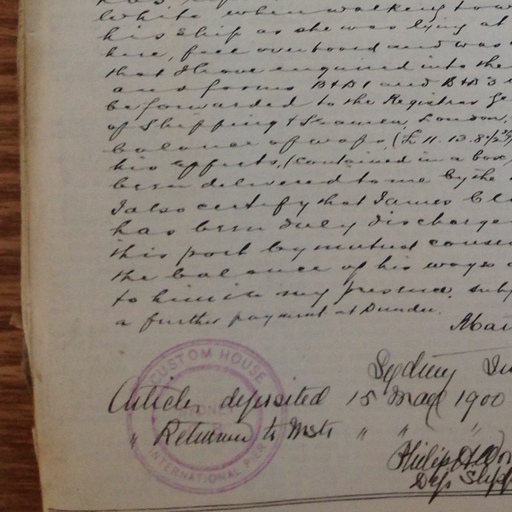 White when walking
his ship as she was lying at
here, fell overboard and was
that I have enquired into the
and forms B&B1 and B&B3
be forwarded to the Registrar Ge
of Shipping & Seamen London,
balance of wages (£11.13.8½
his effects, (contained in a box,
been delivered to me by the
I also certify that James Cl
has been duly discharge
this port by mutual conse
the balance of his wages
to him in my presence, subj
a further payment at Dundee.
CUSTOM HOUSE
SYDNEY
INTERNATIONAL PIER
Sydney
Articles deposited 15 Mar 1900
" Returned to Mstr " "
Philip
Dep Shipp